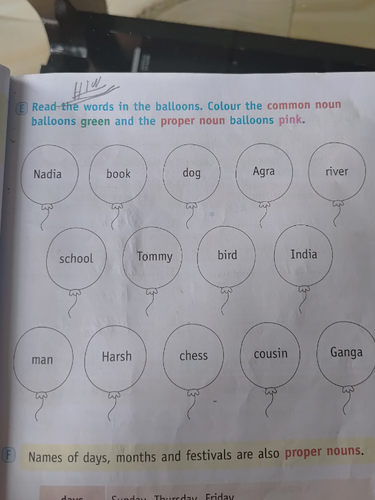 H/W
E Read the words in the balloons. Colour the common noun
balloons green and the proper noun balloons pink.
Nadia book dog Agra river
school Tommy bird India
man Harsh chess cousin Ganga
F Names of days, months and festivals are also proper nouns.
days Sunday, Thursday, Friday